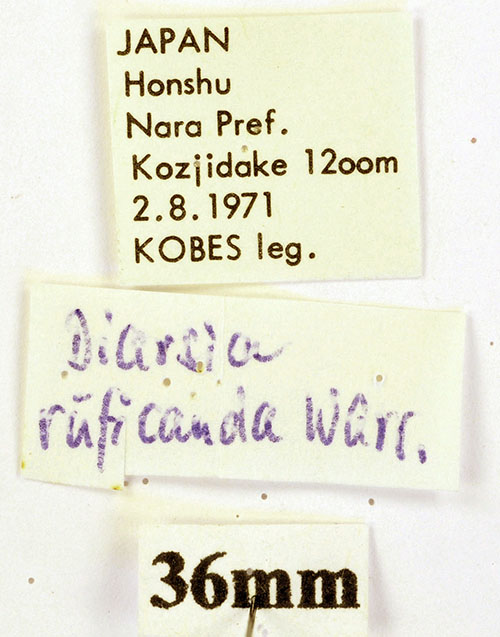 JAPAN
Honshu
Nara Pref.
Kozjidake 12oom
2.8.1971
KOBES leg.
Diarsia
ruficauda Warr.
36mm